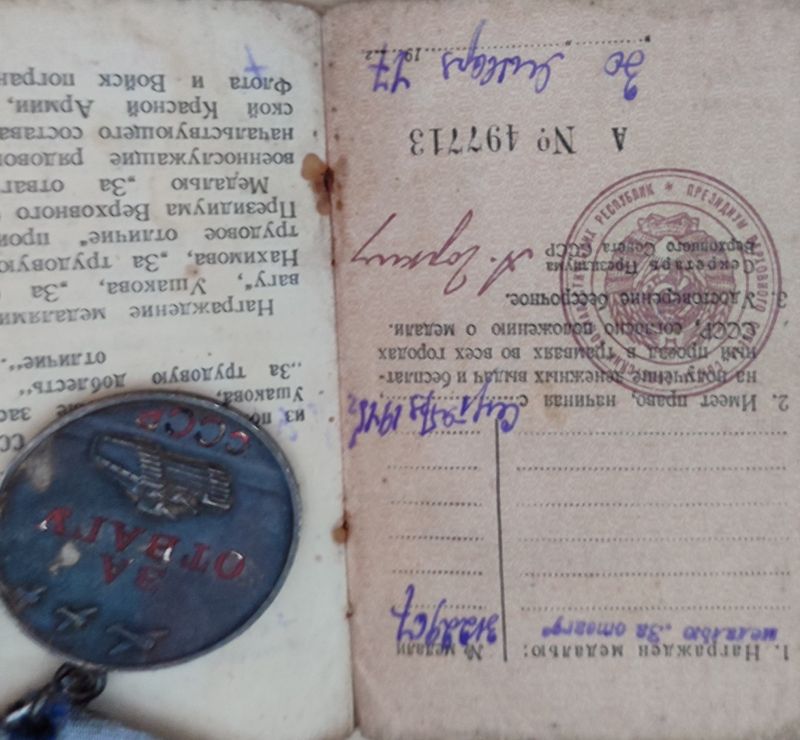 1. Награжден медалью: № медали
медалью „За отвагу"
2. Имеет право, начиная с
на получение денежных выдач и бесплат-
ный проезд в трамваях во всех городах
СССР, согласно положению о медали.
3. Удостоверение бессрочное.
Секретарь Президиума
Верховного Совета СССР
А. Горкин
ПРЕЗИДИУМ ВЕРХОВНОГО РЕСПУБЛИК
А № 497713
30 января 47
ЗА
ОТВАГУ
СССР
Ушакова,
„За трудовую доблесть"
отличие".
Награждение медалями
вагу", Ушакова, „За
Нахимова, „За трудовую
трудовое отличие" прои
Президиума Верховного
Медалью „За отваг
военнослужащие рядовог
начальствующего состава
ской Красной Армии,
Флота и Войск погран